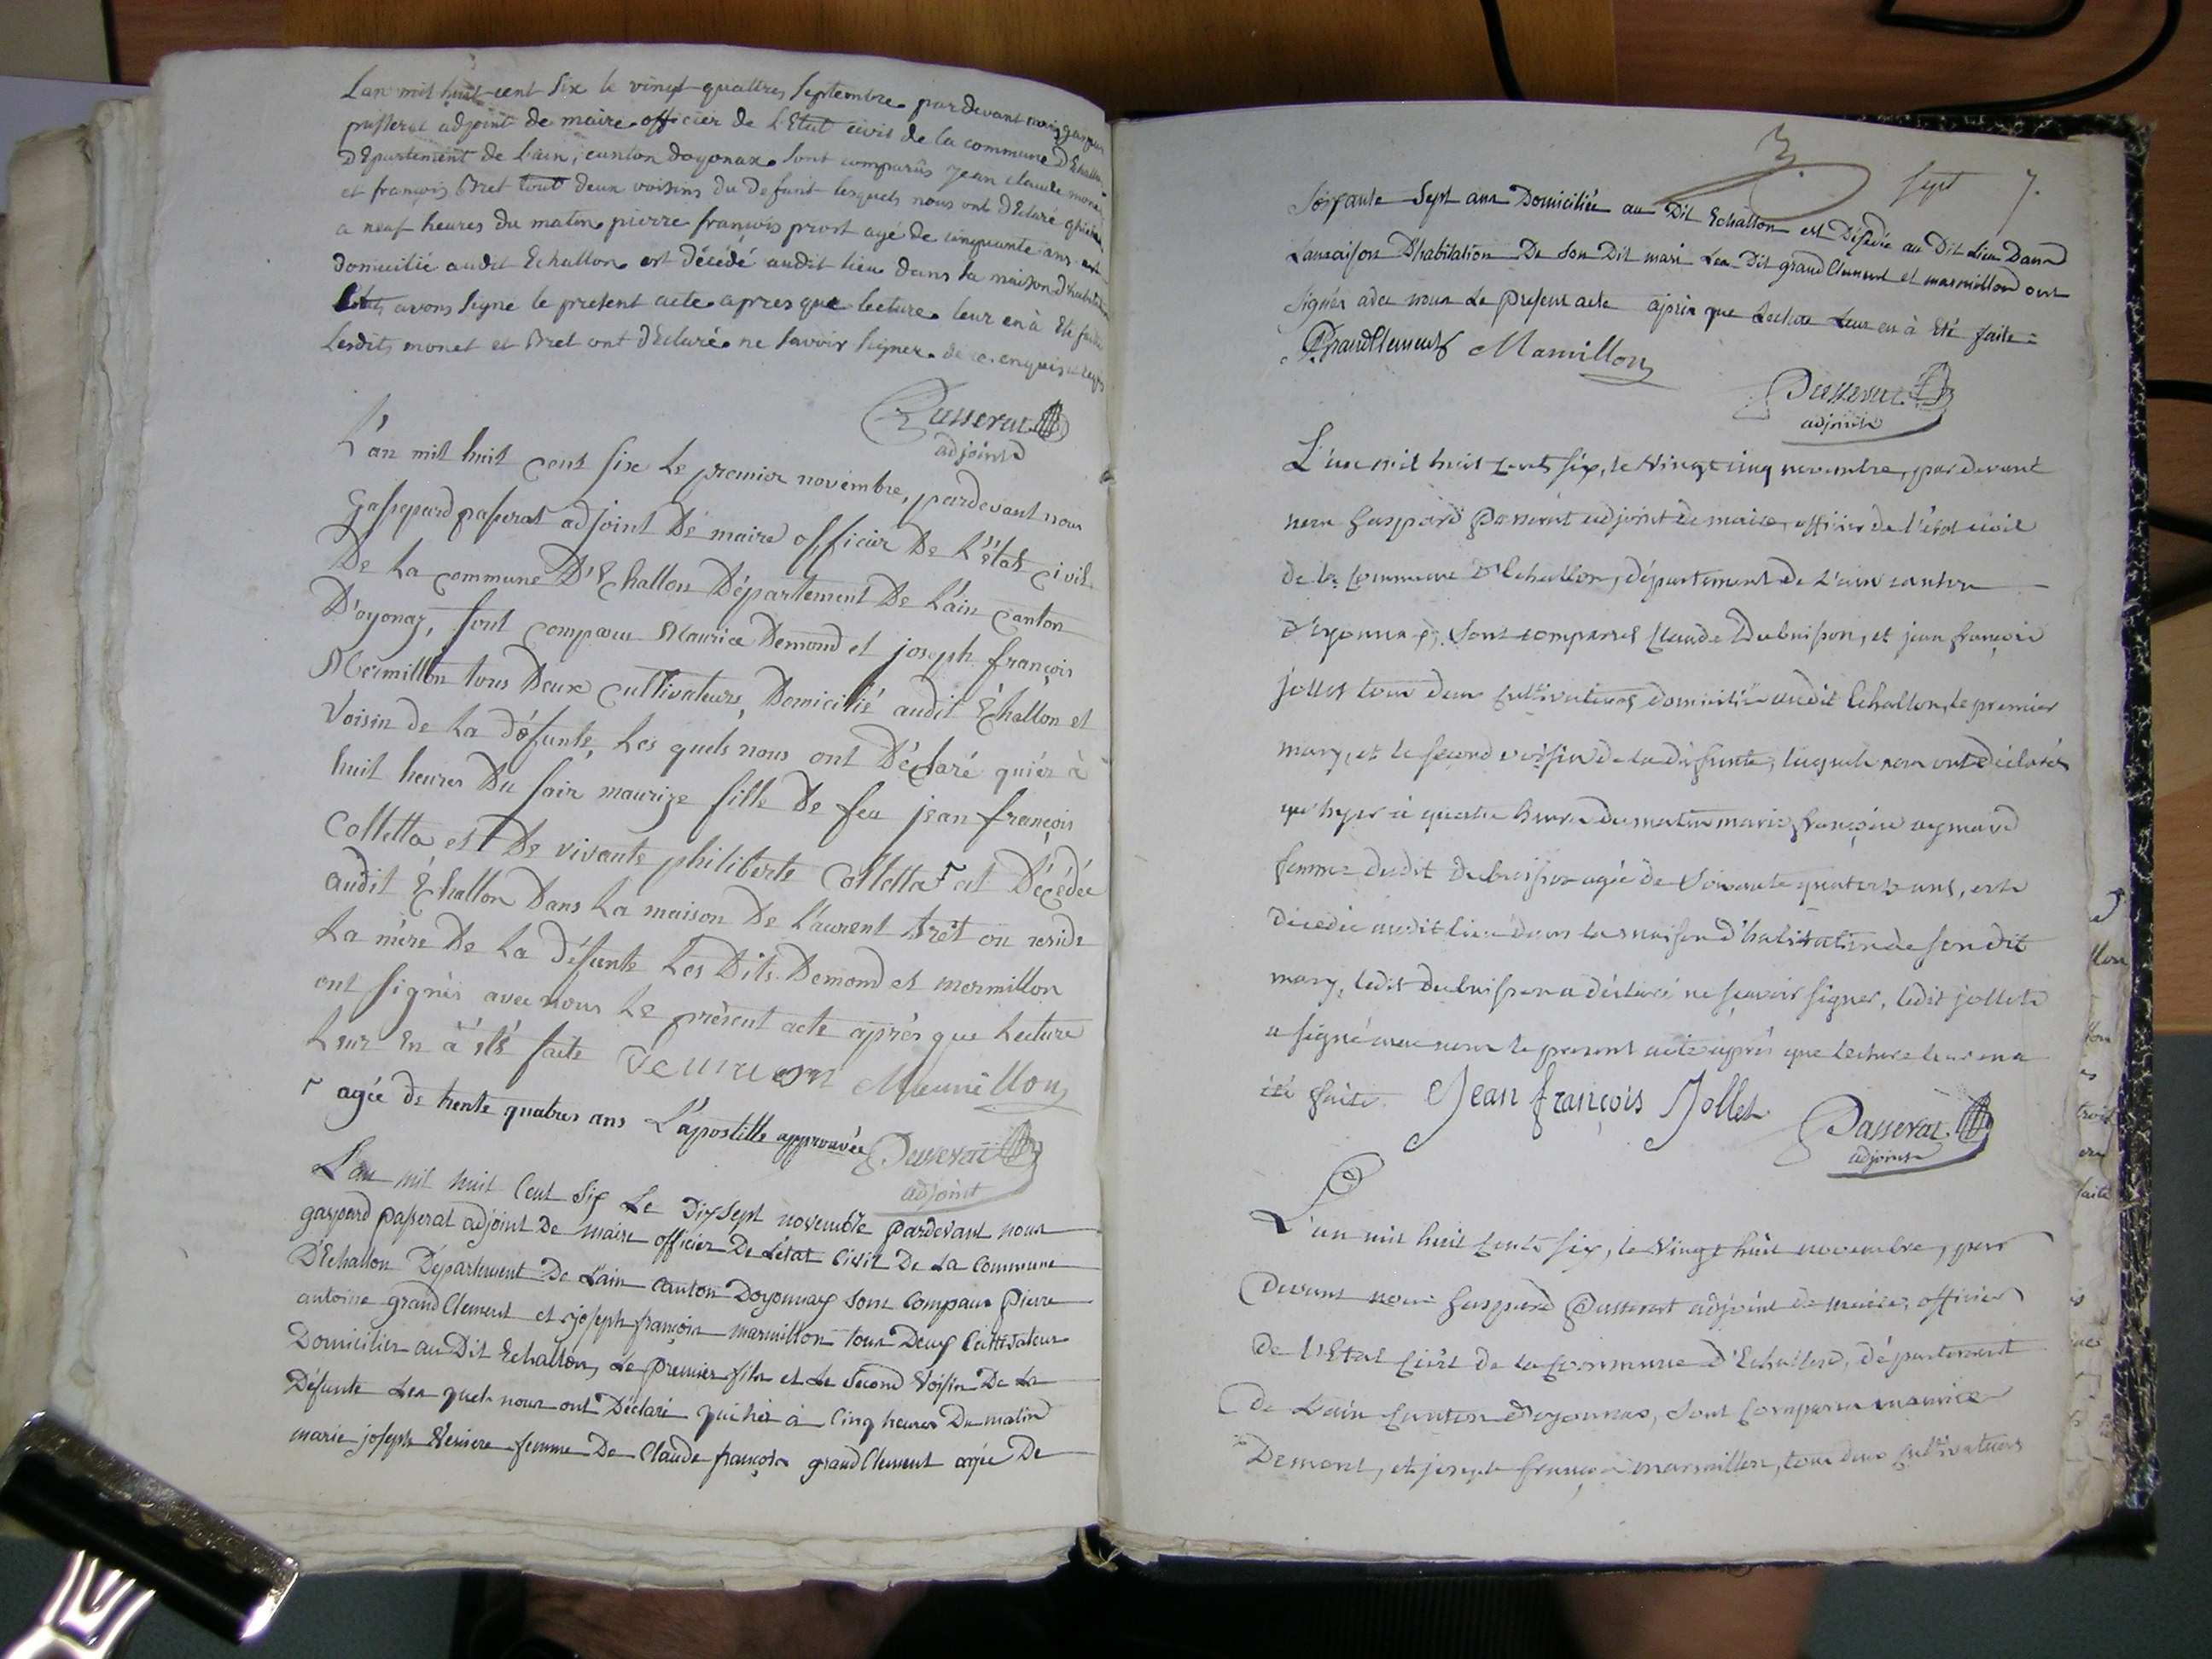 Lan mil huit cent six le vingt quattres Septembre par devant nous gaspar
passerat adjoint de maire officier de L'Etat civil de la commune D'Echallon
DEpartement de L'ain, canton doyonax Sont comparûs jean claude monet
et françois Bret tout deux voisins du defunt lesquels nous ont dEclaré qhier
a neuf heures du matin pierre françois prost agé de cinquante ans est
domicilié audit Echallon est décédé audit lieu dans sa maison d'habitation
avons Signé le present acte apres que lecture leur en à Eté faite
Lesdits monet et Bret ont dEclaré ne savoir signer de ce enquis
Passerat
adjoint
L'an mil huit cent six le premier novembre, pardevant nous
Gaspepard passerat adjoint De maire officier De L'état civil
De La commune D'Echallon Département De L'ain Canton
D'oyonax, sont comparu Maurice Demond et joseph françois
Mermillon tous Deux Cultivateurs, Domicilié audit Échallon et
Voisin de La défunte, Les quels nous ont Déclaré qu'iér à
huit heures Du soir maurize fille De feu jean françois
Colletta et De vivante philiberte Colletta ⌜ est Décédée
audit Échallon Dans La maison De L'aurent trêt ou reside
La mère De La Défunte Les Dits Demond et mermillon
ont signés avec nous Le présent acte après que Lecture
Leur En à été faite Demond Mermillon
⌜ agée de trente quatres ans L'apostille approuvée Passerat
adjoint
L'an mil huit Cent Six Le Dixsept novembre pardevant nous
gaspard passerat adjoint De maire officier De L'état Civil De La Commune
D'Echallon Département De L'ain Canton Doyonnax Sont Comparu Pierre
antoine grandClement et joseph françois marmillon tous Deux Cultivateur
Domicilier au Dit Echallon, Le Premier fils et Le Second Voisin De La
Défunte Les quels nous ont Déclaré qu'hier à Cinq heures Du matin
marie joseph femme De Claude françois grandClement agée De
Sept 7.
Soixante Sept ans Domiciliée au Dit Echallon est Décédée au Dit Lieu Dans
La maison D'habitation De Son Dit mari Les Dit grandClement et marmillon ont
Signés avec nous Le Present acte après que Lecture Leur en à Eté faite
GrandClement Marmillon
Passerat
adjoint
L'an mil huit cent six, le Vingt cinq novembre, par devant
nous Gaspard Passerat adjoint de maire, officier de l'état civil
de la Commune d'Echallon, département de L'ain canton
d'Oyonnax, Sont comparus Claude Dubuisson, et jean françois
jollet tous deux Cultivateurs domiciliés audit Echallon, le premier
mary, et le second voisin de la défunte, lesquels nous ont déclarés
qu'hyer à quatre heures du matin marie françoise aymard
femme dudit Dubuisson agée de Soixante quatorze ans, est
décédée audit lieu dans la maison d'habitation de son dit
mary, ledit Dubuisson a déclaré ne sçavoir signer, ledit jollet
a signé avec nous le present acte après que lecture leur en a
été faite. Jean françois Jollet Passerat
adjoint
L'an mil huit Cent six, le Vingt huit novembre, par
Devant nous Gaspard Passerat adjoint de maire, officier
de l'Etat Civil de la Commune d'Echallon, département
de L'ain Canton d'oyonnax, Sont Comparu maurice
Demont, et joseph françois marmillon, tous deux Cultivateurs